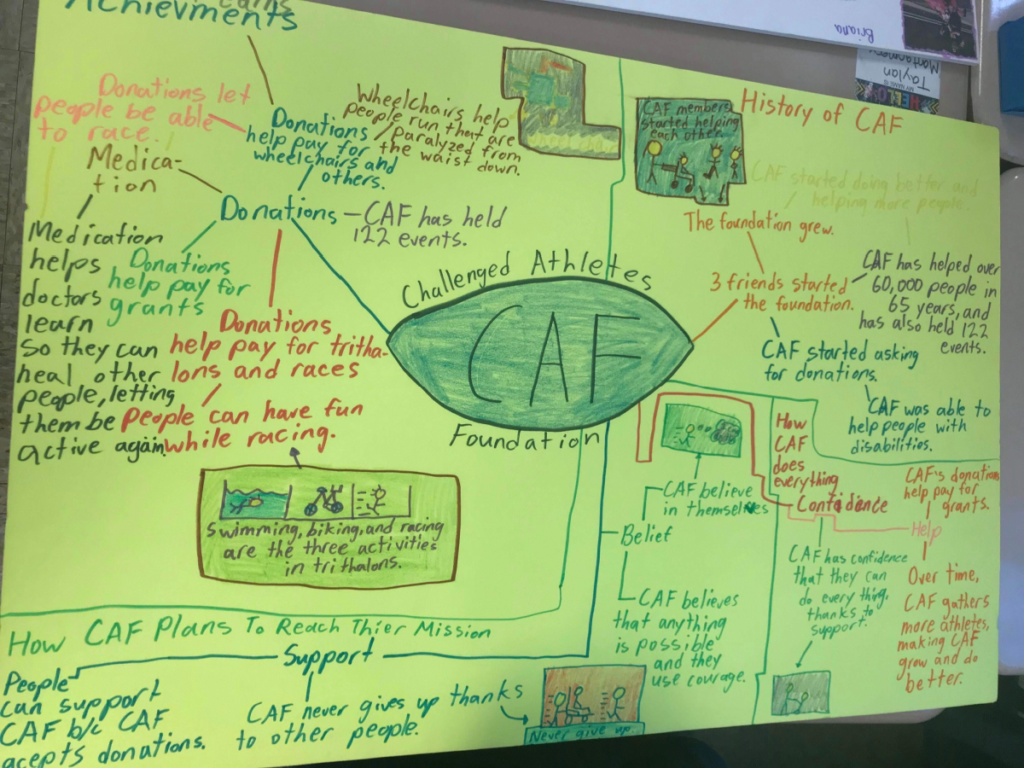 Achievments
Donations let
people be able
to race.
Medica-
tion
Medication
helps
doctors
learn
so they can
heal other
people, letting
them be
active again
Donations
help pay for
wheelchairs and
others.
Wheelchairs help
people run that are
paralyzed from
the waist down.
Donations
CAF has held
122 events.
Donations
help pay for
grants
Donations
help pay for tritha-
lons and races
People can have fun
while racing.
Swimming, biking, and racing
are the three activities
in trithalons.
Challenged Athletes
CAF
Foundation
History of CAF
CAF members
started helping
each other.
CAF started doing better and
helping more people.
The foundation grew.
3 friends started
the foundation.
CAF has helped over
60,000 people in
65 years, and
has also held 122
events.
CAF started asking
for donations.
CAF was able to
help people with
disabilities.
How
CAF
does
everything
Confidence
CAF has confidence
that they can
do every thing,
thanks to
support.
CAF's donations
help pay for
grants.
Help
Over time,
CAF gathers
more athletes,
making CAF
grow and do
better.
CAF believe
in themselves
Belief
CAF believes
that anything
is possible
and they
use courage.
How CAF Plans To Reach Thier Mission
Support
People
can support
CAF b/c CAF
acepts donations.
CAF never gives up thanks
to other people.
Never give up
Briana
Taylan
Montgomery